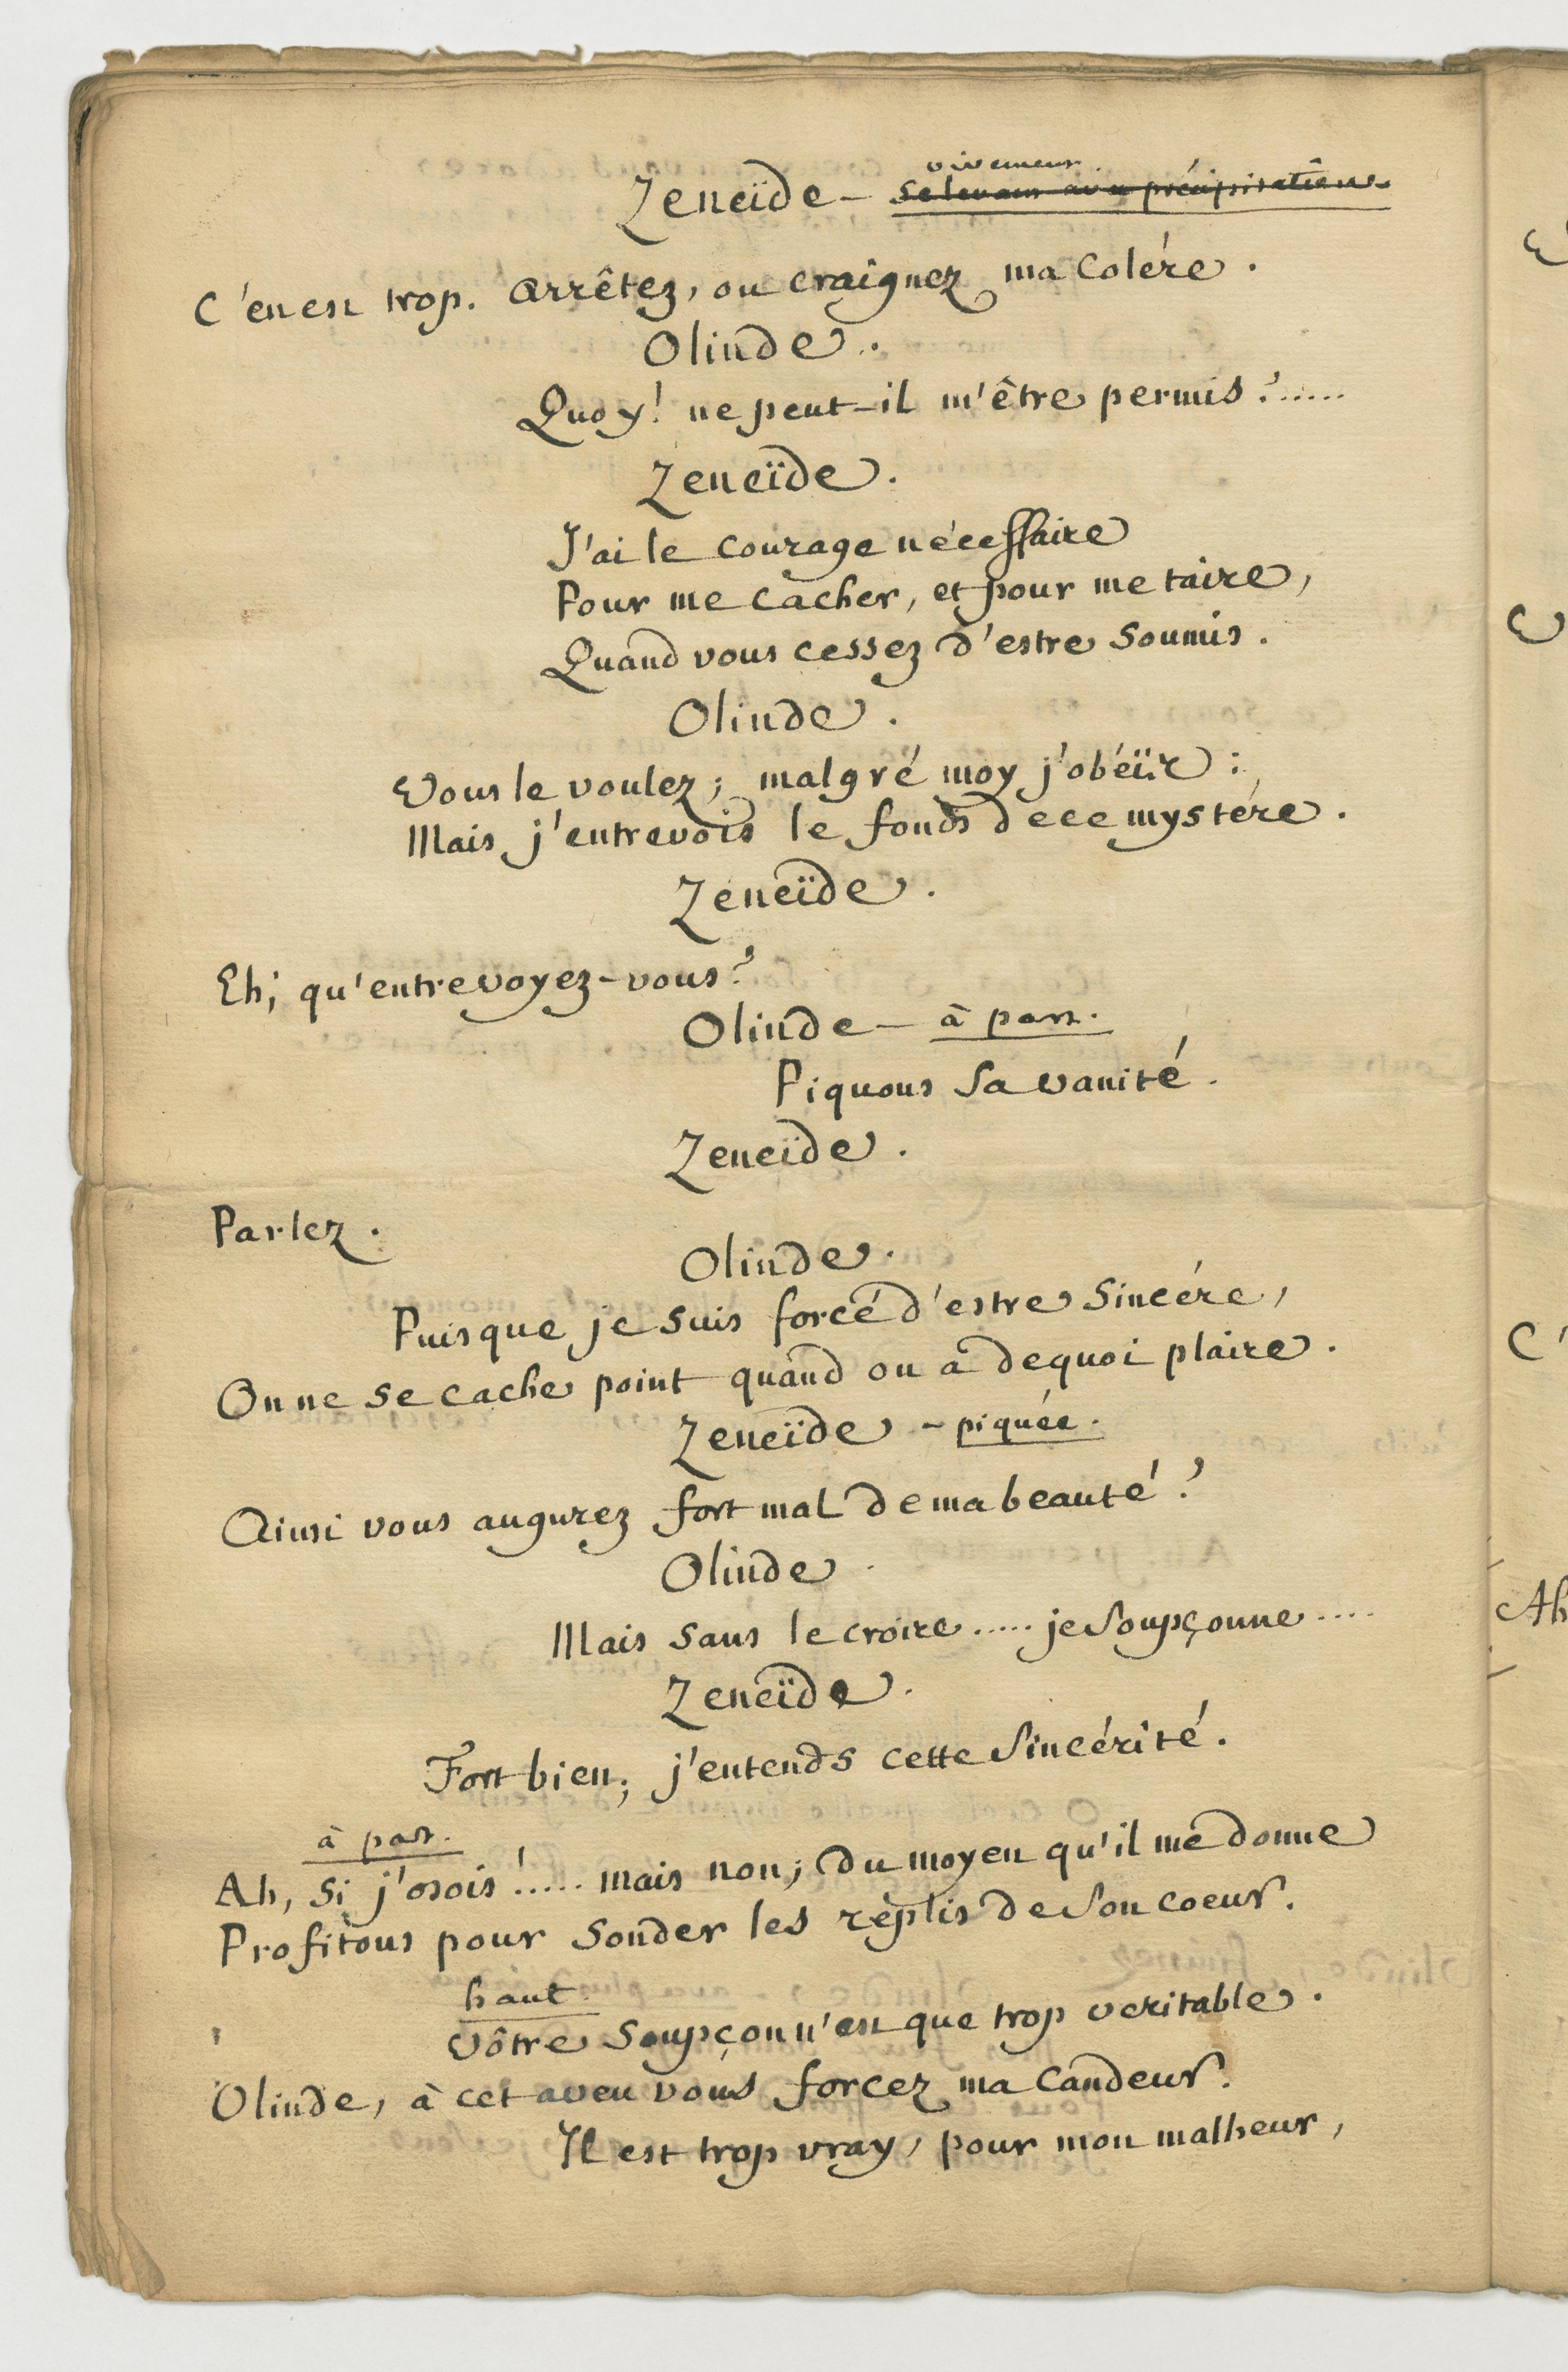 vivement
Zeneïde - se levant avec précipitation.
C'en est trop. arrêtez, ou craignez ma colére.
Olinde.
Quoy! ne peut-il m'être permis?......
Zeneïde.
J'ai le courage nécessaire
Pour me cacher, et pour me taire,
Quand vous cessez d'estre soumis.
Olinde.
Vous le voulez; malgré moy j'obéïr:
Mais j'entrevois le fonds de ce mystére.
Zeneïde.
Eh; qu'entrevoyez-vous?
Olinde - à part.
Piquons sa vanité.
Zeneïde.
Parlez.
Olinde.
Puisque je suis forcé d'estre sincére,
On ne se cache point quand on a dequoi plaire.
Zeneïde - piquée.
Ainsi vous augurez fort mal de ma beauté?
Olinde.
Mais sans le croire..... je soupçonne.....
Zeneïde.
Fort bien; j'entends cette sincérité.
à part.
Ah, si j'osois!..... mais non; du moyen qu'il me donne
Profitons pour sonder les replis de son coeur.
haut
Vôtre soupçon n'est que trop veritable.
Olinde, à cet aveu vous forcez ma candeur.
Il est trop vray, pour mon malheur,
C'
Ah